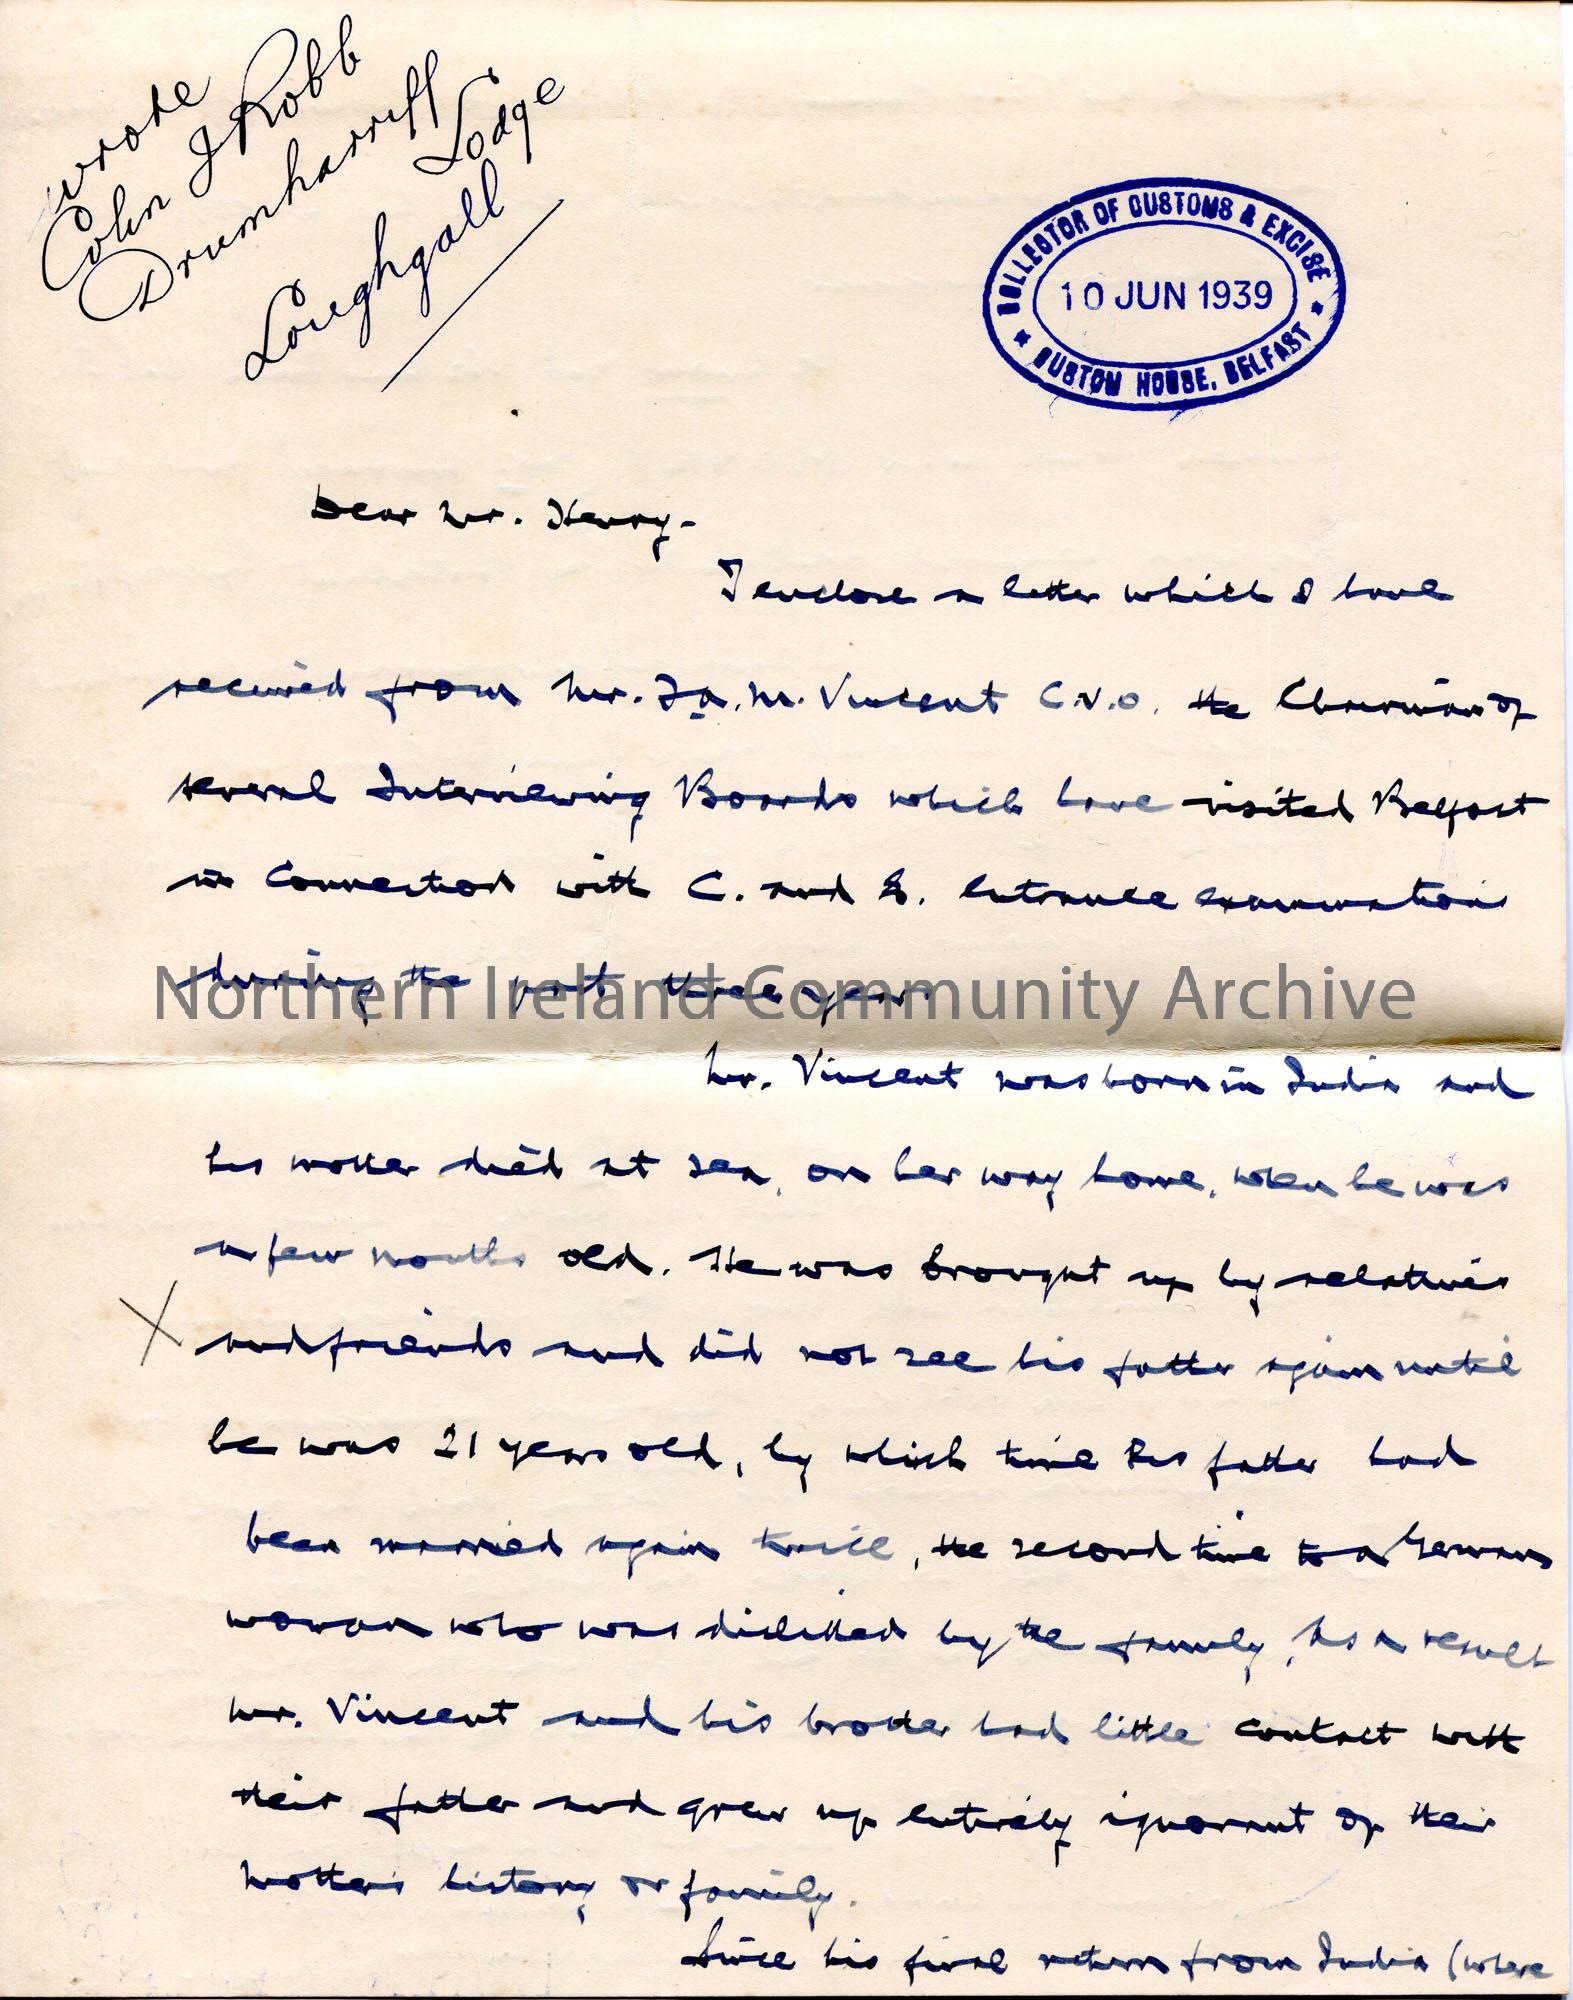 wrote
Colin J Robb
Drumharriff
Lodge
Loughgall
COLLECTOR OF CUSTOMS & EXCISE
10 JUN 1939
CUSTOM HOUSE, BELFAST
Dear Mr. Henry-
I enclose a letter which I have
received from Mr. F.A.M. Vincent C.V.O. the Chairman of
several Interviewing Boards which have visited Belfast
in connection with C. and E. entrance examinations
during the past three years
Northern Ireland Community Archive
Mr. Vincent was born in India and
his mother died at sea, on her way home, when he was
a few months old. He was brought up by relatives
X and friends and did not see his father again until
he was 21 years old, by which time his father had
been married again twice, the second time to a German
woman who was disliked by the family. As a result
Mr. Vincent and his brother had little contact with
their father and grew up entirely ignorant of their
mother's history or family.
Since his final return from India (where